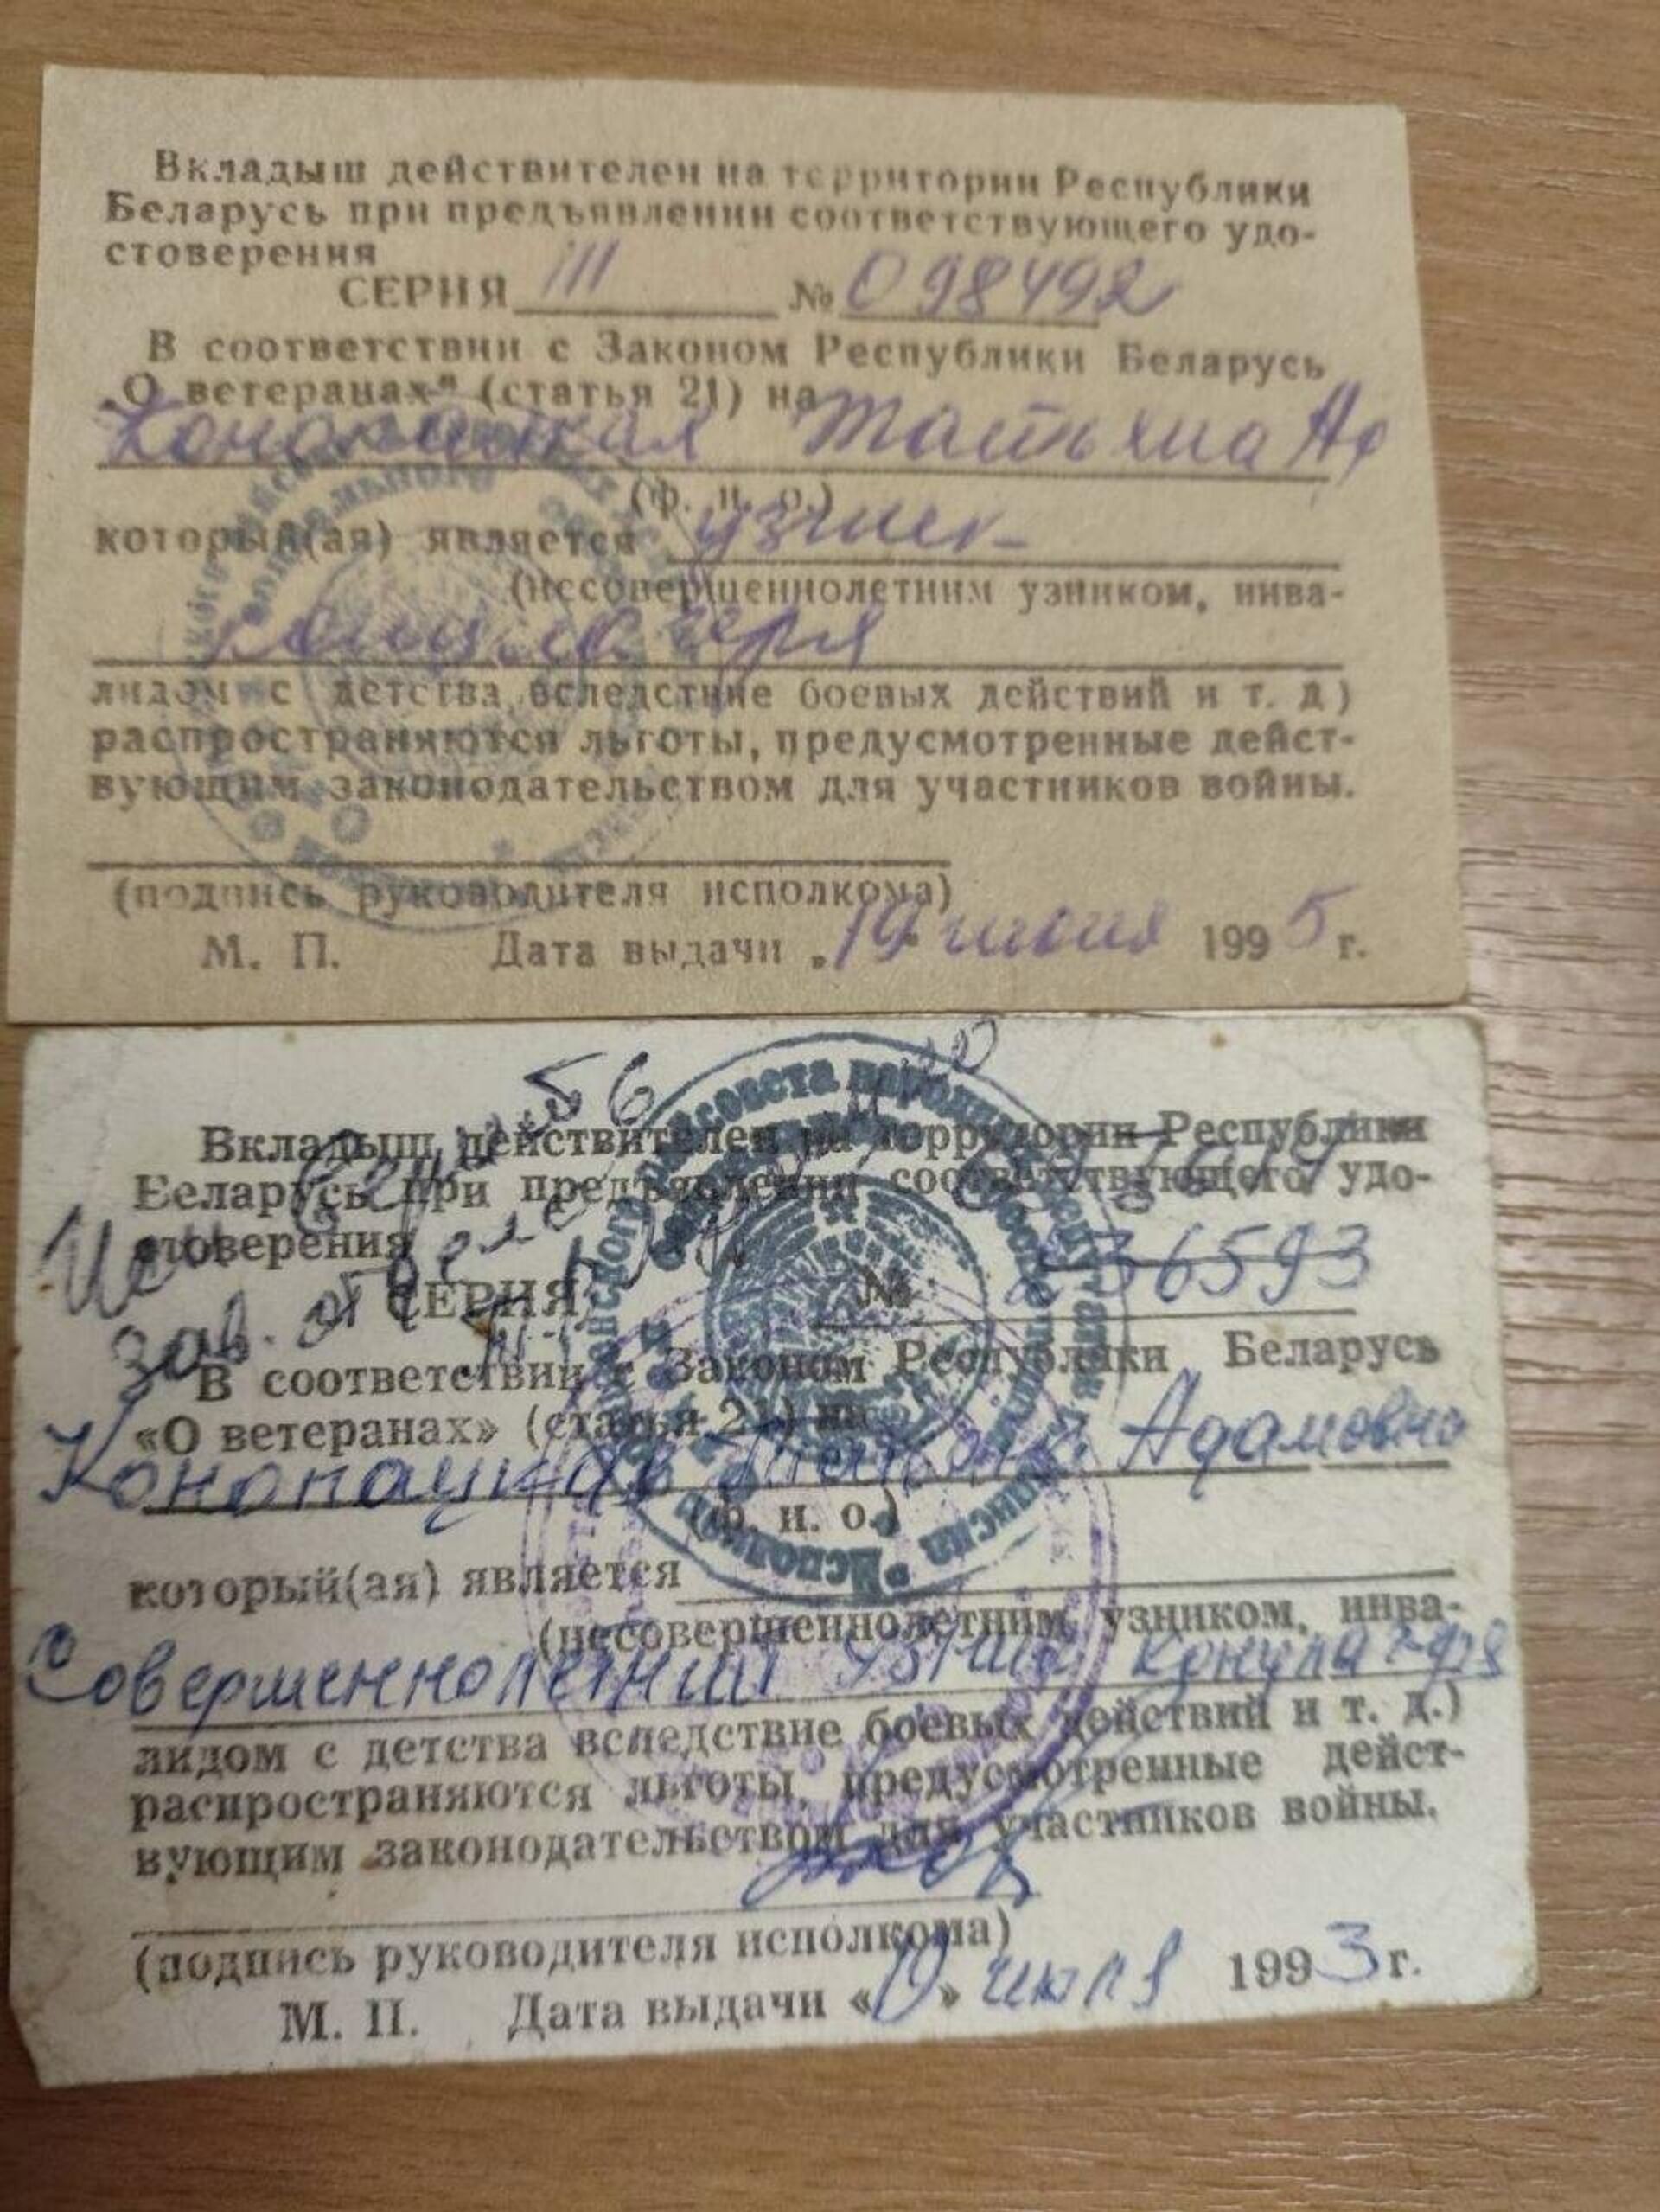 Вкладыш действителен на территории Республики
Беларусь при предъявлении соответствующего удо-
стоверения
СЕРИЯ III № 098492
В соответствии с Законом Республики Беларусь
„О ветеранах" (статья 21) на
Конопацкая Татьяна Ад
(ф. и. о.)
который(ая) является узник
(несовершеннолетним узником, инва-
концлагеря
лидом с детства вследствие боевых действий и т. д)
распространяются льготы, предусмотренные дейст-
вующим законодательством для участников войны.
(подпись руководителя исполкома)
М. П. Дата выдачи „19 июня 1995 г.
Вкладыш действителен на территории Республики
Беларусь при предъявлении соответствующего удо-
стоверения
зав. отдела
СЕРИЯ № 236593
В соответствии с Законом Республики Беларусь
«О ветеранах» (статья 21) на
Конопацкая Татьяна Адамовна
(ф. и. о.)
который(ая) является
(несовершеннолетним узником, инва-
Совершеннолетний узник концлагеря
лидом с детства вследствие боевых действий и т. д.)
распространяются льготы, предусмотренные дейст-
вующим законодательством для участников войны.
(подпись руководителя исполкома)
М. П. Дата выдачи «10» июля 1993 г.